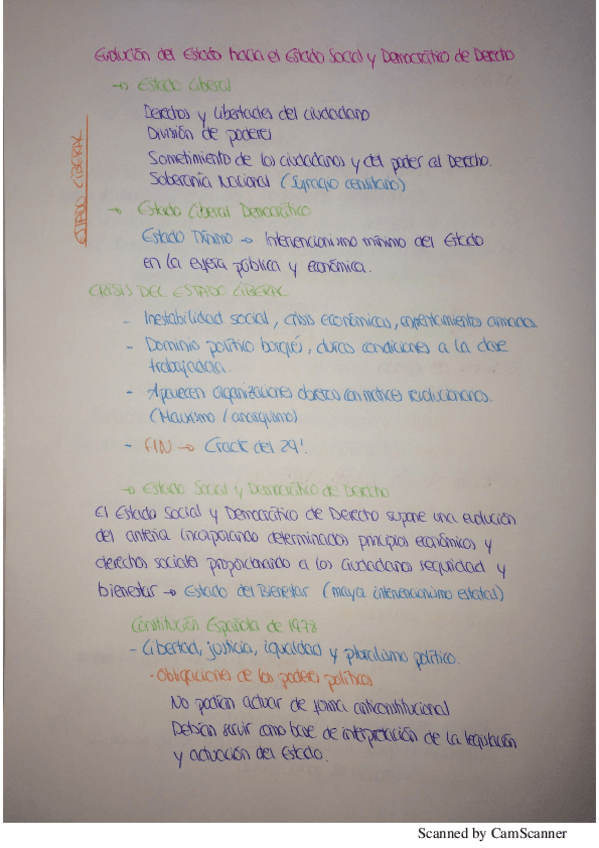 Evolución del Estado hacia el Estado Social y Democrático de Derecho
→ Estado Liberal
Derechos y Libertades del ciudadano
División de poderes
Sometimiento de los ciudadanos y del poder al Derecho.
Soberanía Nacional (Sufragio censitario)
ESTADO LIBERAL
→ Estado Liberal Democrático
Estado Mínimo → Intervencionismo mínimo del Estado
en la esfera pública y económica.
CRISIS DEL ESTADO LIBERAL
- Inestabilidad social, crisis económicas, enfrentamientos armados.
- Dominio político burgués, duras condiciones a la clase
trabajadora.
- Aparecen organizaciones obreras con matices revolucionarios.
(Marxismo / anarquismo)
- FIN → Crack del 29'.
→ Estado Social y Democrático de Derecho
El Estado Social y Democrático de Derecho supone una evolución
del anterior incorporando determinados principios económicos y
derechos sociales proporcionando a los ciudadanos seguridad y
bienestar → Estado del Bienestar (mayor intervencionismo estatal)
Constitución Española de 1978
- Libertad, justicia, igualdad y pluralismo político.
· Obligaciones de los poderes políticos
No podían actuar de forma anticonstitucional
Debían servir como base de interpretación de la legislación
y actuación del Estado.
Scanned by CamScanner